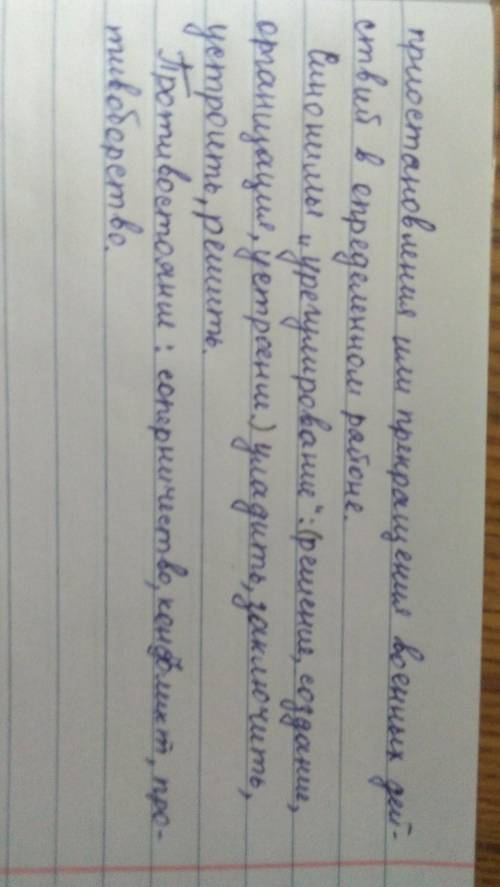 приостановления или прекращения военных дей-
ствий в определенном районе.
Синонимы „урегулирование": (решение, создание,
организация, устроение) уладить, заключить,
устроить, решить.
Противостояние: соперничество, конфликт, про-
тивоборство.